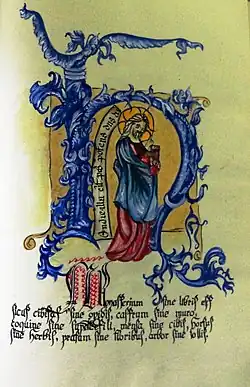 Monasterium sine libris est
sicut civitas sine opibus, castrum sine muro,
coquina sine suppellectili, mensa sine cibis, hortus
sine herbis, pratum sine floribus, arbor sine foliis.